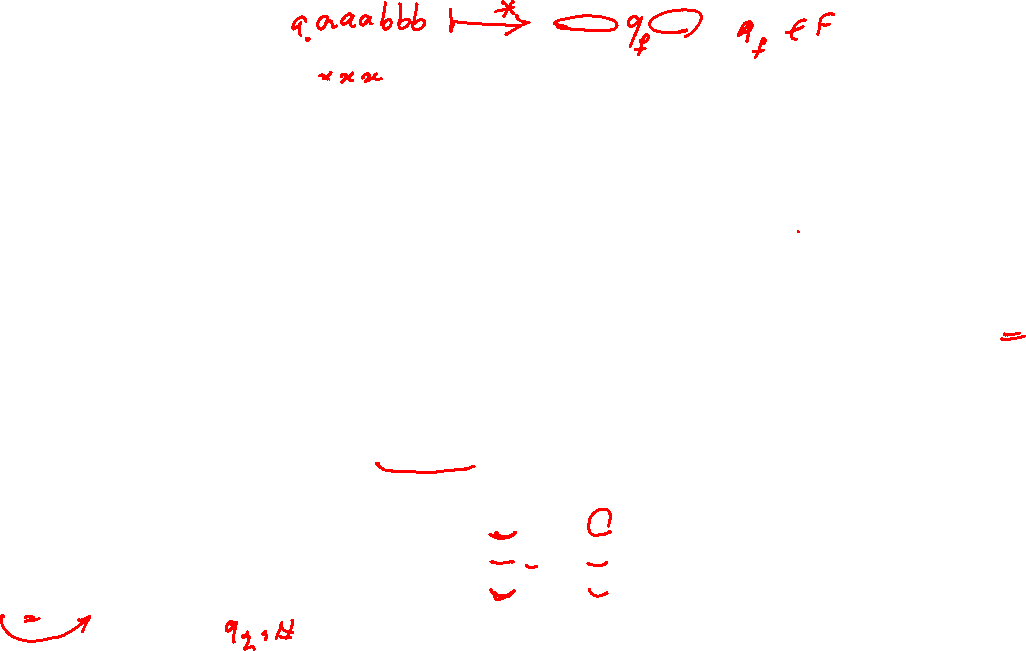 q₀aaabbb ⊢* q_f q_f ∈ F
x x x
=
q₂,